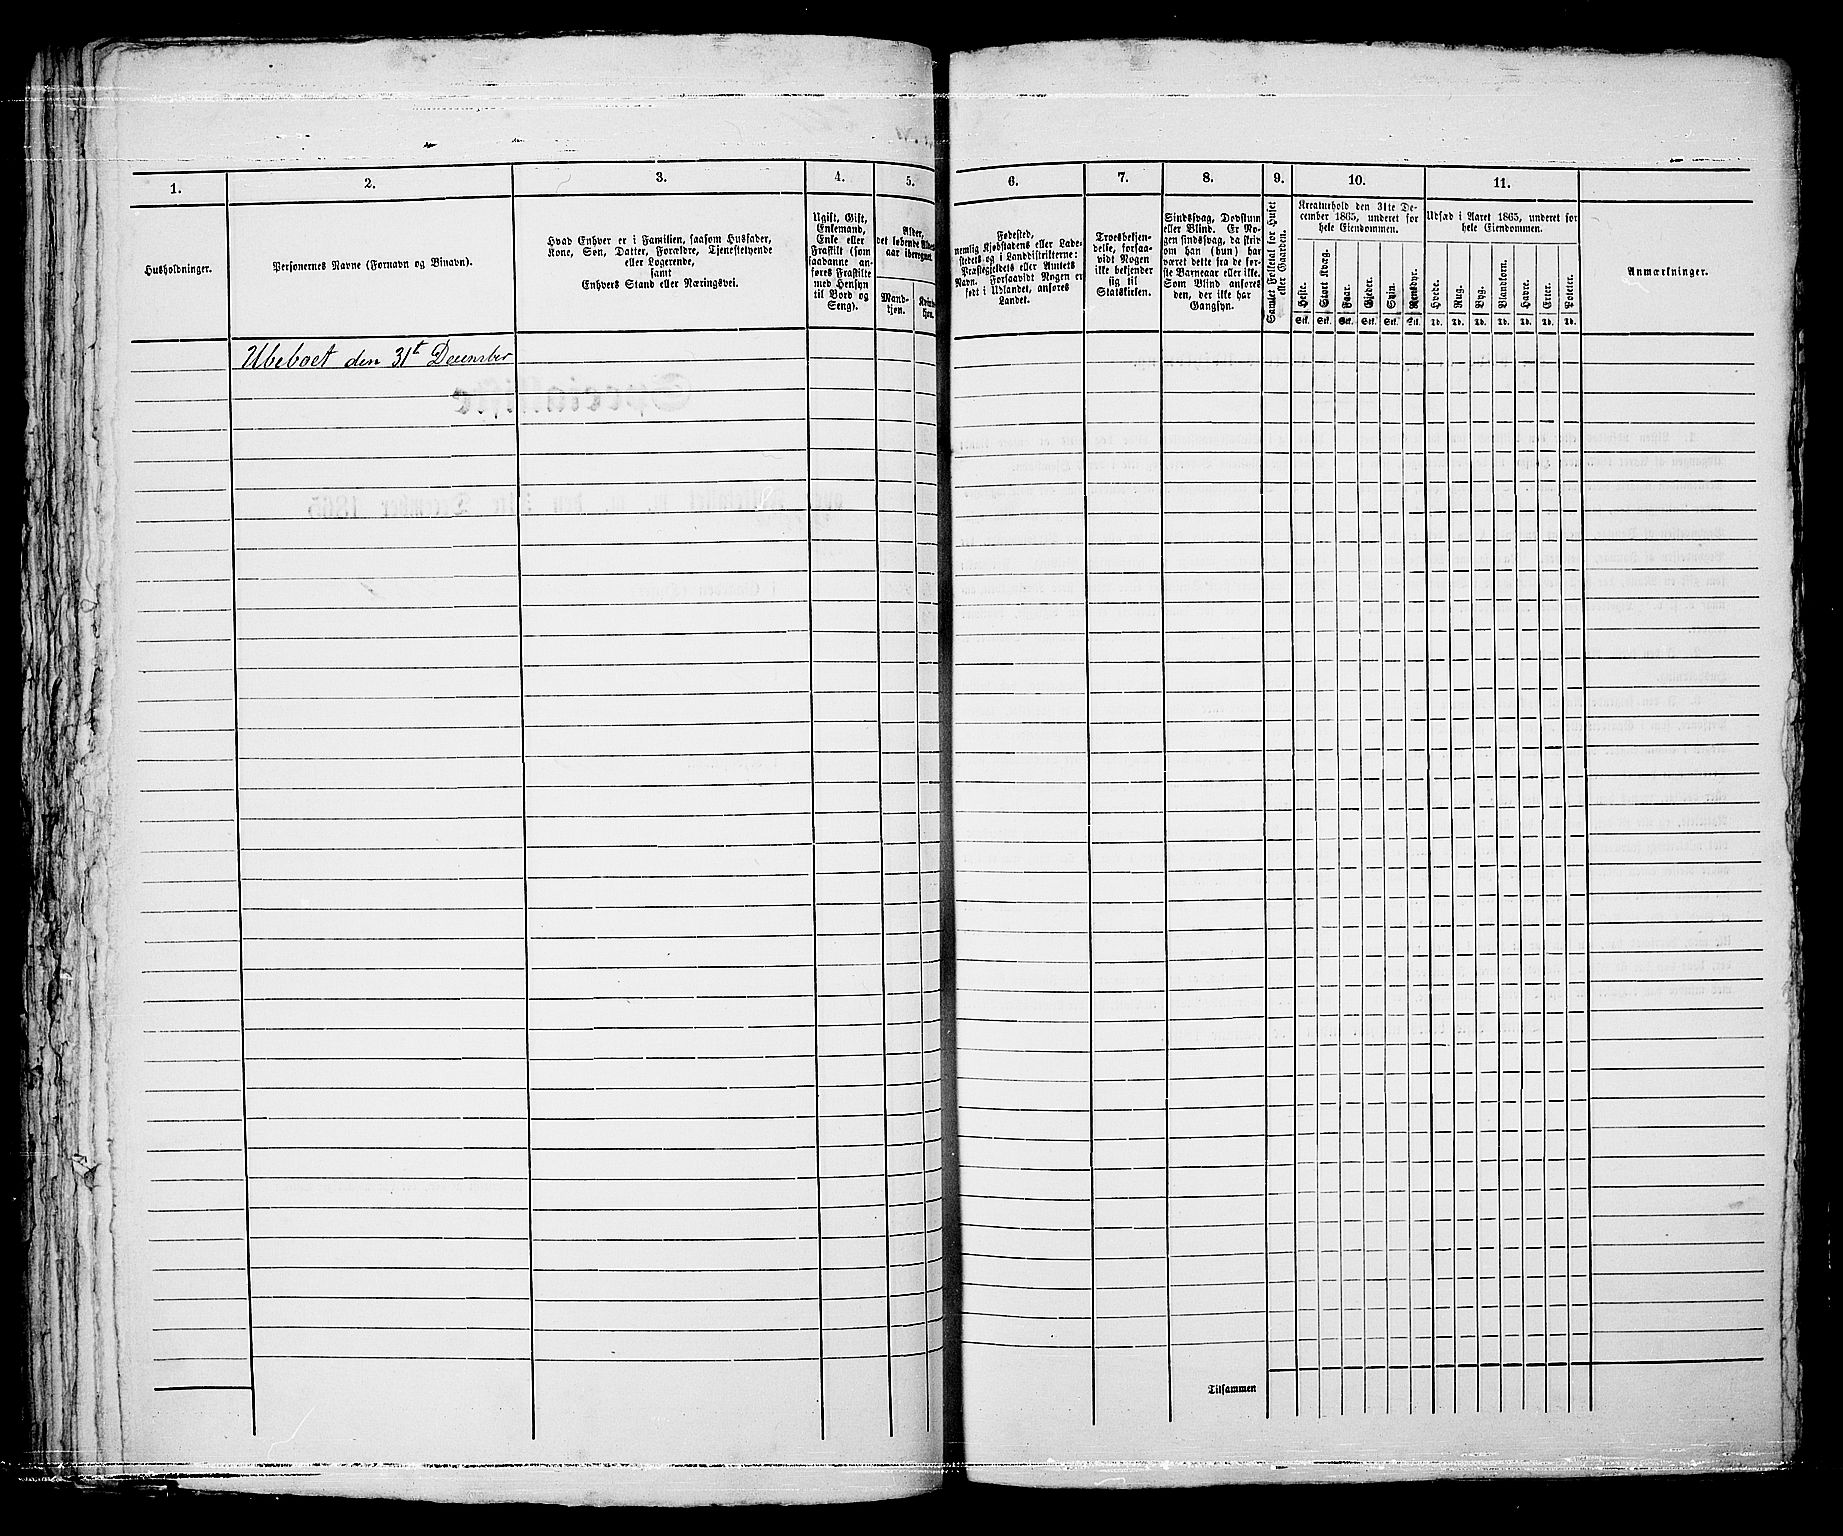 1.
2.
3.
4.
5.
6.
7.
8.
9.
10.
11.
Husholdninger.
Personernes Navne (Fornavn og Binavn).
Hvad Enhver er i Familien, saasom Husfader,
Kone, Søn, Datter, Forældre, Tjenestetyende
eller Logerende,
samt
Enhvers Stand eller Næringsvei.
Ugift, Gift,
Enkemand,
Enke eller
Fraskilt (som
saadanne an-
føres Fraskilte
med Hensyn
til Bord og
Seng).
Alder,
det løbende Alders-
aar iberegnet.
Mand-
kjøn.
Kvinde-
kjøn.
Fødested,
nemlig Kjøbstadens eller Lade-
stedets og i Landdistrikterne:
Præstegjeldets eller Amtets
Navn. Forsaavidt Nogen er
født i Udlandet, anføres
Landet.
Troesbekjen-
delse, forsaa-
vidt Nogen
ikke bekjender
sig til
Statskirken.
Sindssvag, Døvstum
eller Blind. Er No-
gen sindssvag, da skriv
om han (hun) har
været dette fra de før-
ste Barneaar eller ikke.
Som Blind anføres
den, der ikke har
Gangsyn.
Samlet Folketal for Huset
eller Gaarden.
Kreaturhold den 31te De-
cember 1865, underet for
hele Eiendommen.
Heste.
Stort Kvæg.
Faar.
Gjeder.
Svin.
Rensdyr.
Stk. Stk. Stk. Stk. Stk. Stk.
Udsæd i Aaret 1865, underet for
hele Eiendommen.
Hvede.
Rug.
Byg.
Blandkorn.
Havre.
Erter.
Poteter.
Td. Td. Td. Td. Td. Td. Td.
Anmærkninger.
Ubeboet den 31t December
Tilsammen